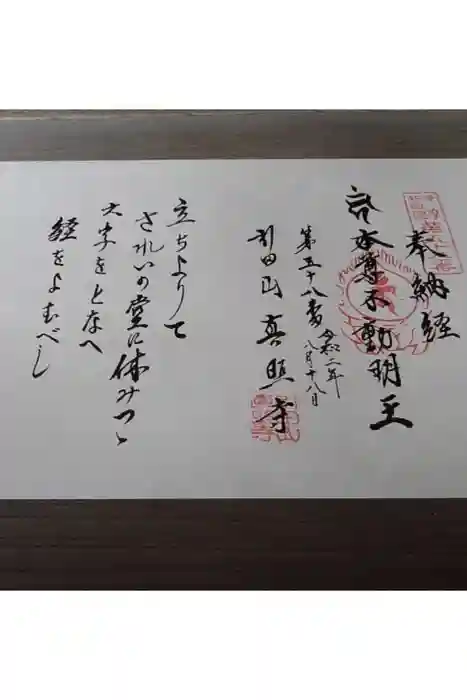 奉納経
本尊不動明王
第五十八番
令和二年
八月十八日
引田山 真照寺
立ちよりて
されいの堂に休みつゝ
六字をとなへ
経をよむべし